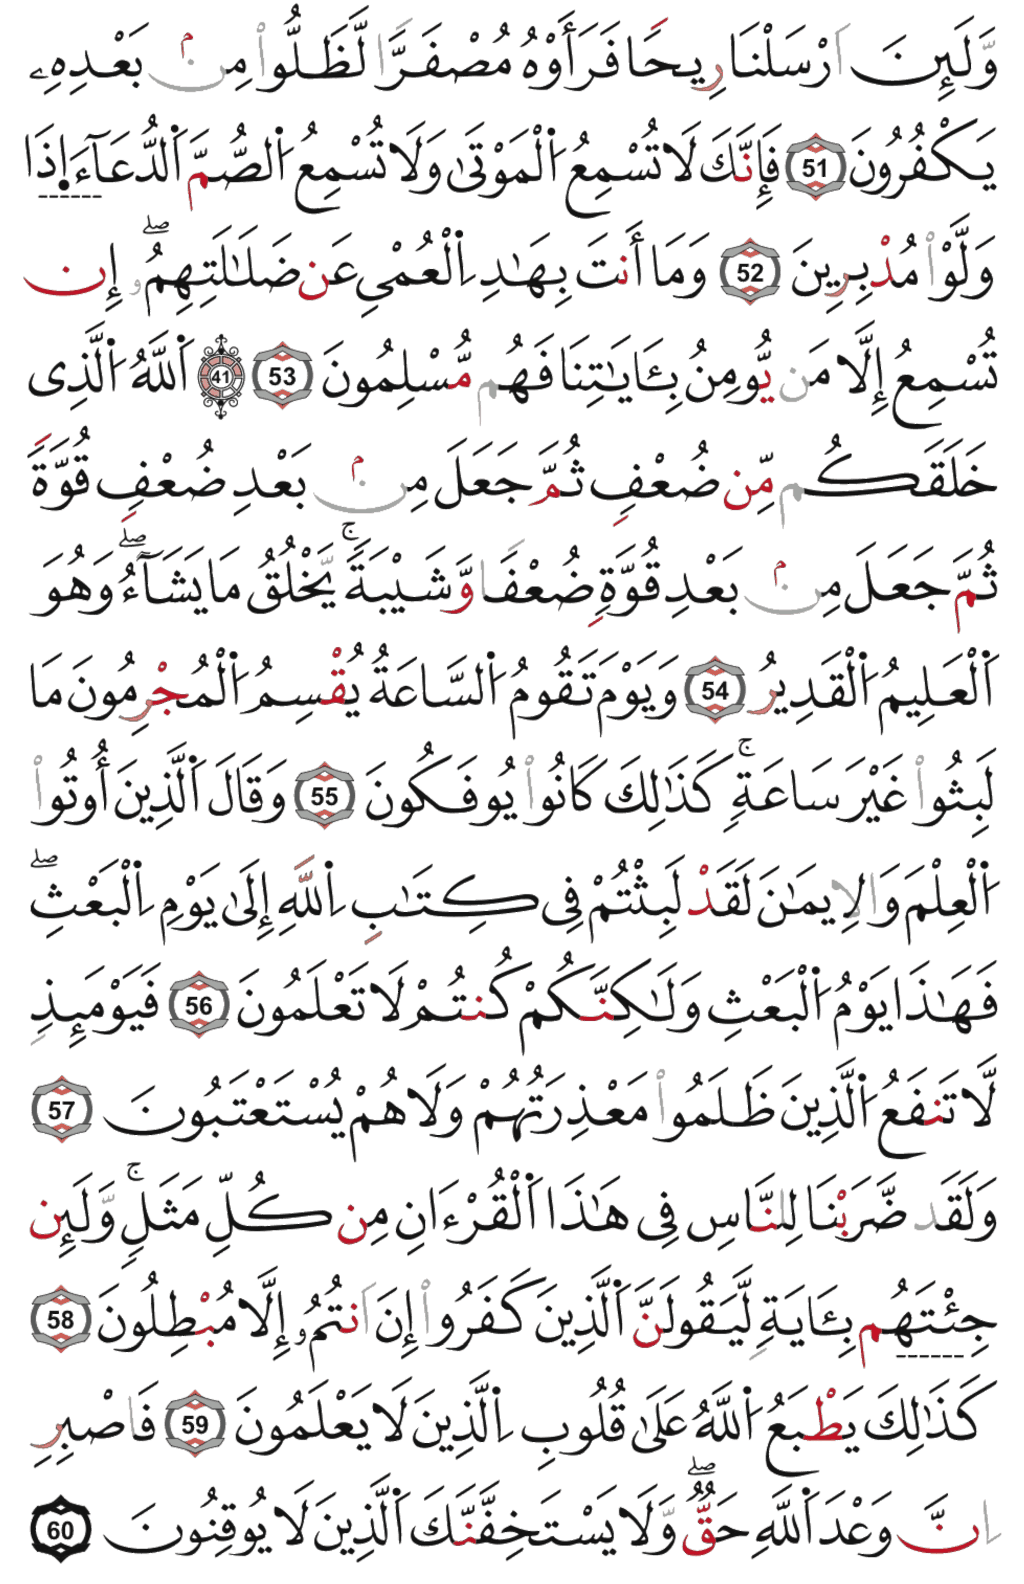 وَلَئِنَ اَرْسَلْنَا رِيحًا فَرَأَوْهُ مُصْفَرًّا لَّظَلُّوا۟ مِنۢ بَعْدِهِۦ
يَكْفُرُونَ 51 فَإِنَّكَ لَا تُسْمِعُ اُ۬لْمَوْتَىٰ وَلَا تُسْمِعُ اُ۬لصُّمَّ اَ۬لدُّعَآءَ ا۪ذَا
وَلَّوْا۟ مُدْبِرِينَ 52 وَمَا أَنتَ بِهَٰدِ اِ۬لْعُمْيِ عَن ضَلَٰلَتِهِمُۥٓ ۖ إِن
تُسْمِعُ إِلَّا مَن يُّومِنُ بِـَٔايَٰتِنَا فَهُم مُّسْلِمُونَ 53 41 اَ۬للَّهُ اُ۬لَّذِى
خَلَقَكُم مِّن ضُعْفٍ ثُمَّ جَعَلَ مِنۢ بَعْدِ ضُعْفٍ قُوَّةً
ثُمَّ جَعَلَ مِنۢ بَعْدِ قُوَّةٍ ضُعْفًا وَّشَيْبَةً ۚ يَّخْلُقُ مَا يَشَآءُ ۖ وَهُوَ
اَ۬لْعَلِيمُ اُ۬لْقَدِيرُ 54 وَيَوْمَ تَقُومُ اُ۬لسَّاعَةُ يُقْسِمُ اُ۬لْمُجْرِمُونَ مَا
لَبِثُوا۟ غَيْرَ سَاعَةٍ ۚ كَذَٰلِكَ كَانُوا۟ يُوفَكُونَ 55 وَقَالَ اَ۬لَّذِينَ أُوتُوا۟
اُ۬لْعِلْمَ وَالِايمَٰنَ لَقَدْ لَبِثْتُمْ فِى كِتَٰبِ اِ۬للَّهِ إِلَىٰ يَوْمِ اِ۬لْبَعْثِ ۖ
فَهَٰذَا يَوْمُ اُ۬لْبَعْثِ وَلَٰكِنَّكُمْ كُنتُمْ لَا تَعْلَمُونَ 56 فَيَوْمَئِذٍ
لَّا تَنفَعُ اُ۬لَّذِينَ ظَلَمُوا۟ مَعْذِرَتُهُمْ وَلَا هُمْ يُسْتَعْتَبُونَ 57
وَلَقَد ضَّرَبْنَا لِلنَّاسِ فِى هَٰذَا اَ۬لْقُرْءَانِ مِن كُلِّ مَثَلٍ ۚ وَّلَئِن
جِئْتَهُم بِـَٔايَةٍ لَّيَقُولَنَّ اَ۬لَّذِينَ كَفَرُوا۟ إِنَ اَنتُمُۥ إِلَّا مُبْطِلُونَ 58
كَذَٰلِكَ يَطْبَعُ اُ۬للَّهُ عَلَىٰ قُلُوبِ اِ۬لَّذِينَ لَا يَعْلَمُونَ 59 فَاصْبِرِ
اِنَّ وَعْدَ اَ۬للَّهِ حَقٌّ ۖ وَّلَا يَسْتَخِفَّنَّكَ اَ۬لَّذِينَ لَا يُوقِنُونَ 60